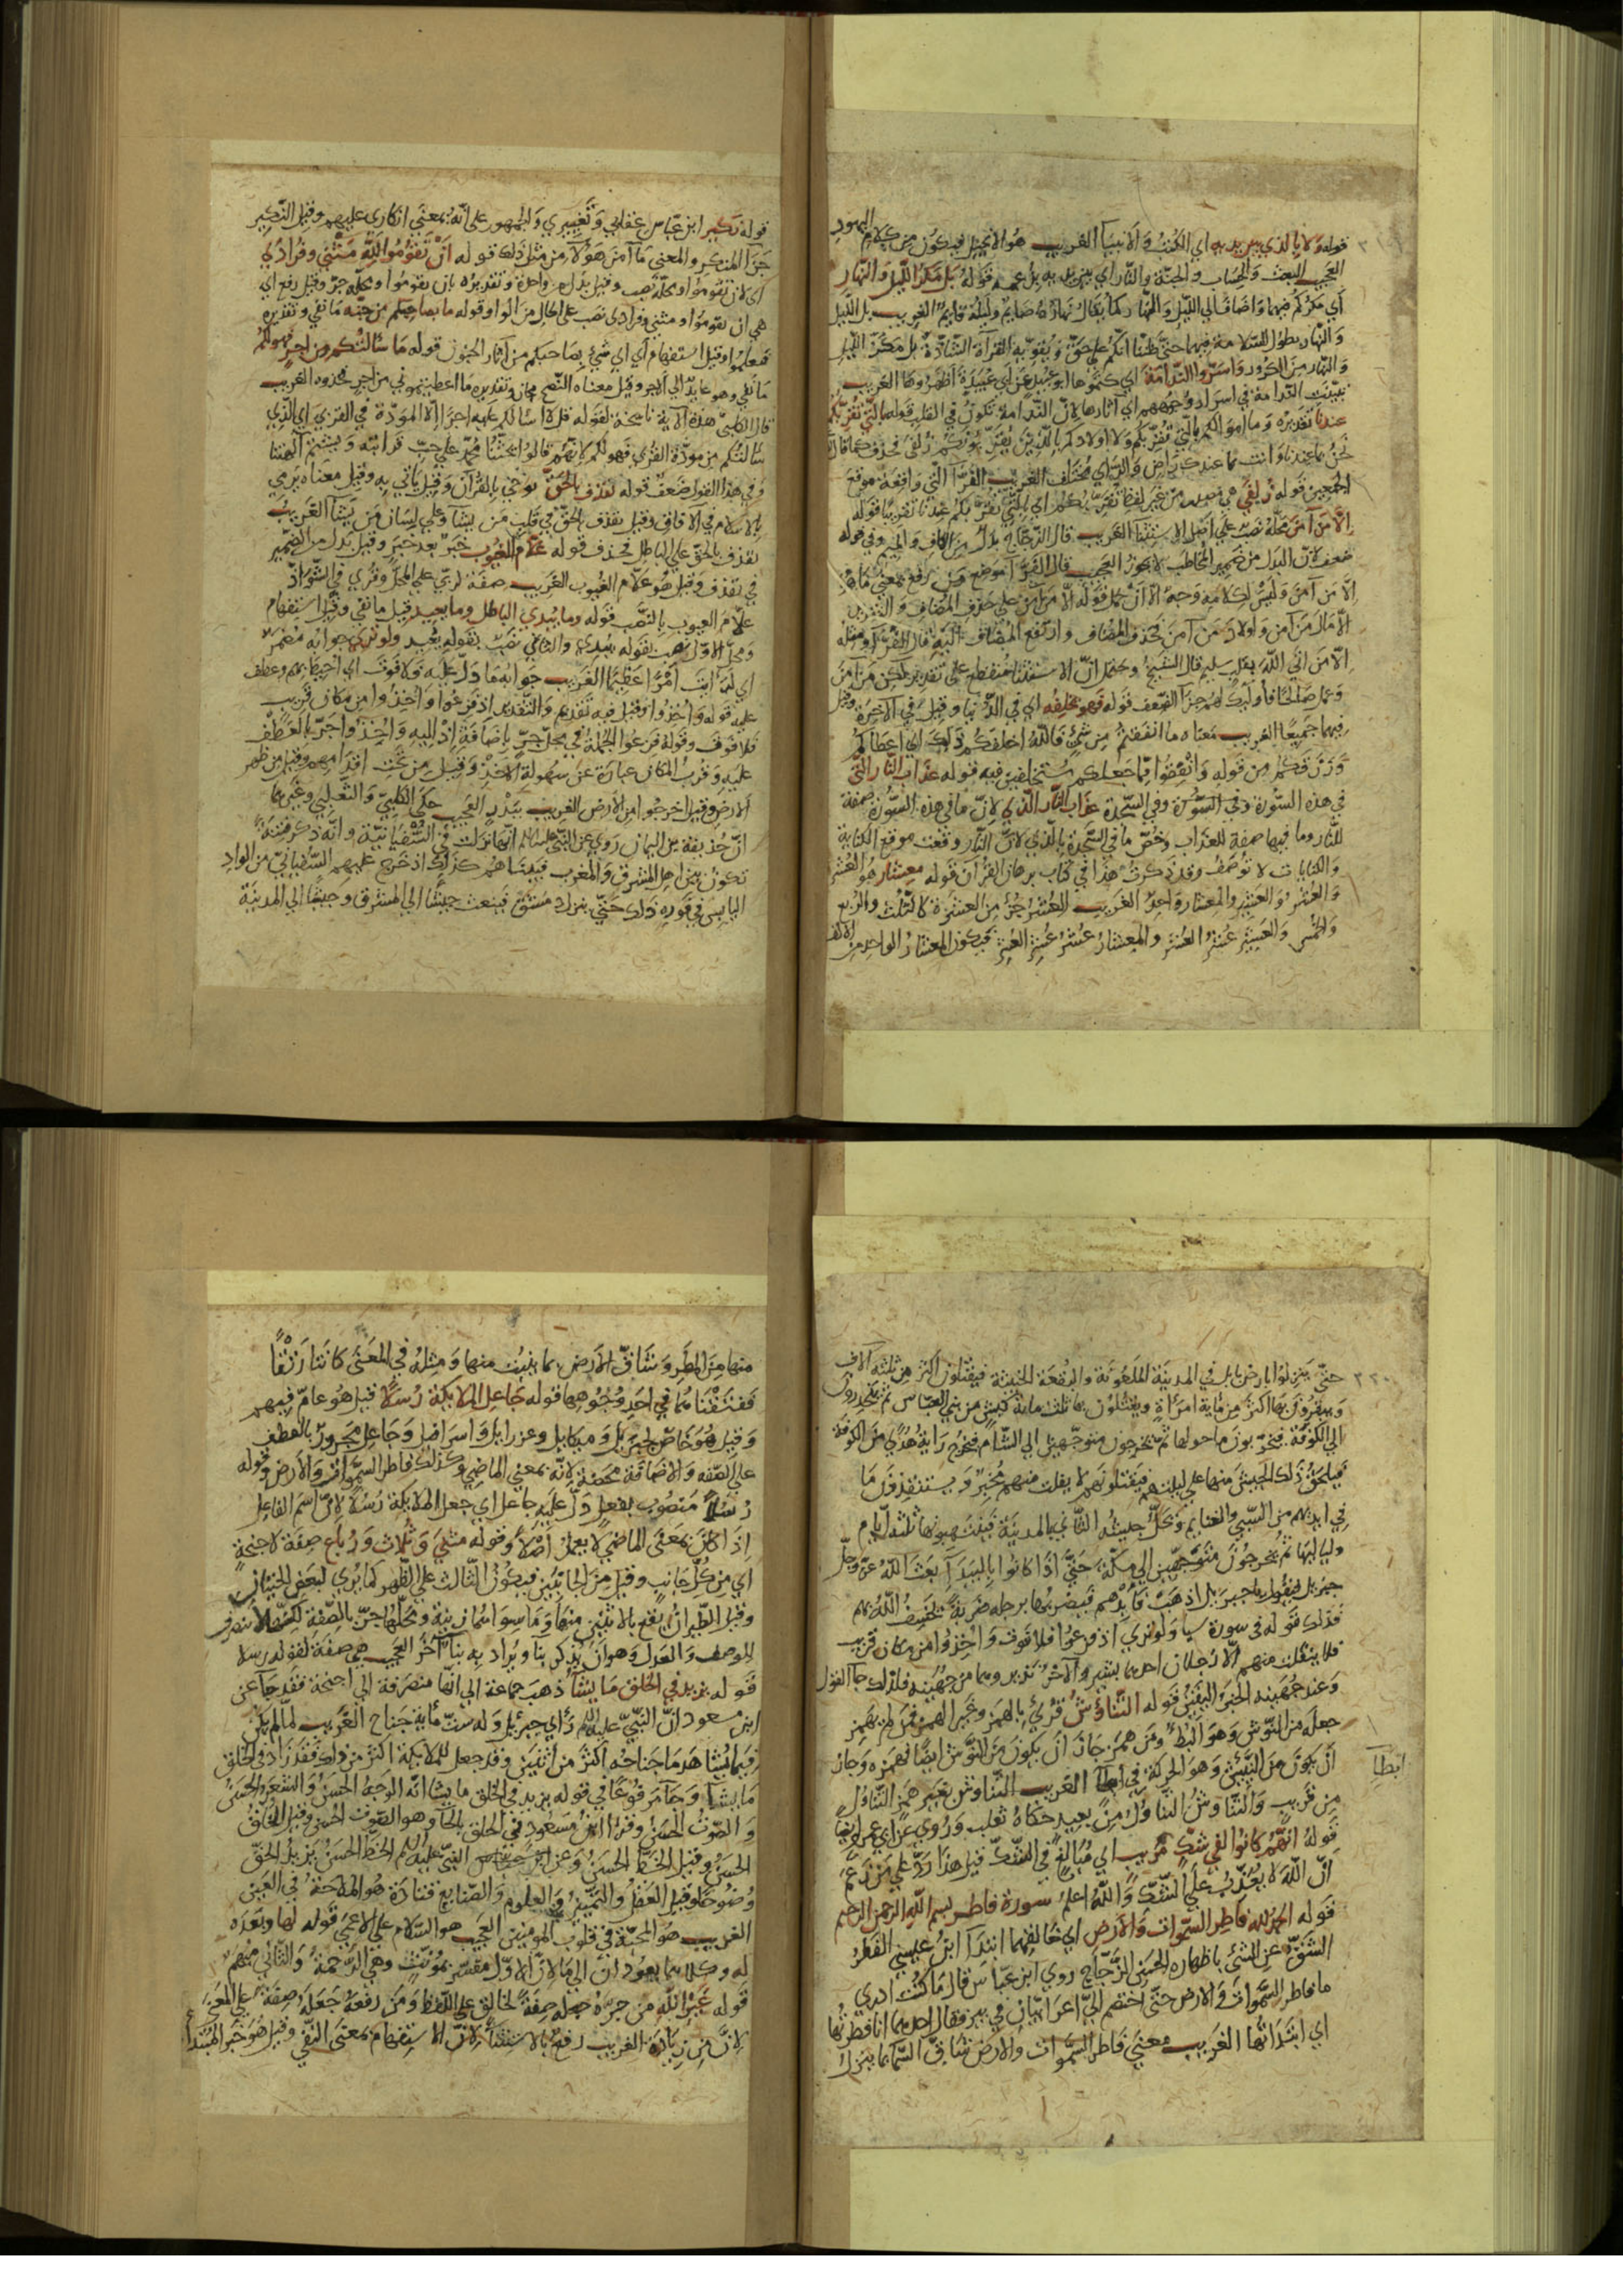 قوله ولا بالذي بين يديه اي الكتب والانبيا الغريب هو الانجيل فيكون من كلام اليهود
العجيب البعث والحساب والجنة والنار اي بين يديه بل عمهم قوله بل مكر الليل والنهار
اي مكركم فيهما واضافا الي الليل والنهار كما يقال نهاره صايم وليله قايم الغريب بل الليل
والنهار بطول السلامة فيهما حتي ظننا انكم علي حق ويقويه القراة الشاذة بل مكر الليل
والنهار من الكرور واسروا الندامة اي كتموها ابو عبيد عن ابي عبيدة اظهروها الغريب
تبينت الندامة في اسرار وجوههم اي آثارها لان الندامة تكون في القلب قوله بالتي تقربكم
عندنا تقديره وما اموالكم بالتي تقربكم ولا اولادكم بالذين يقربونكم زلفي فحذف كما قال
نحن بما عندنا وانت بما عندك راض والراي مختلف الغريب الفرا التي واقعة موقع
الجمعين قوله زلفي هي من غير لفظ تقربكم اي بالتي تقربكم عندنا تقريبا قوله
الا من آمن محله نصب علي اصل الاستثنا الغريب قال الزجاج بدل من الكاف والميم وفي قوله
ضعف لان البدل من ضمير المخاطب لا يجوز العجيب قال الفرا موضع من رفع بمعني ما هو
الا من آمن وليس لكلامه وجه الا ان يحمل قوله الا من آمن علي حذف المضاف والتقدير
الا مال من آمن واولاد من آمن فحذف المضاف وارتفع المضاف اليه قال الفرا ومثله
الا من اتي الله بقلب سليم قال الشيخ ويحتمل ان الاستثنا منقطع علي تقدير لكن من آمن
وعمل صالحا فاوليك لهم جزا الضعف قوله فهو يخلفه اي في الدنيا وقيل في الآخرة وقيل
فيهما جميعا الغريب معناه ما انفقتم من شئ فالله اخلفكم ذلك اي اعطاكم
ورزقكم من قوله وانفقوا مما جعلكم مستخلفين فيه قوله عذاب النار التي
في هذه السورة وفي السجدة عذاب النار الذي لان ما في هذه السورة صفة
للنار وما فيها صفة للعذاب وخص ما في السجدة بالذي لان النار وقعت موقع الكناية
والكنايات لا توصف وقد ذكرت هذا في كتاب برهان القرآن قوله معشار هو العشر
والعشر والعشير والمعشار واحد الغريب العشر جز من العشرة كالثلث والربع
والخمس والعشير عشر العشر والمعشار عشر عشر العشر فيكون المعشار الواحد من الالف
قوله نكير ابن عباس عقابي وتغييري والجمهور علي انه بمعني انكاري عليهم وقيل النكير
جزا المنكر والمعني ما آمن هؤلاء من مثل ذلك قوله ان تقوموا لله مثني وفرادي
اي لان تقوموا ومحله نصب وقيل بدل من واحدة وتقديره بان تقوموا ومحله جر وقيل رفع اي
هي ان تقوموا ومثني وفرادي نصب علي الحال من الواو قوله ما بصاحبكم من جنة ما نفي وتقديره
فتعلموا وقيل استفهام اي اي شئ بصاحبكم من آثار الجنون قوله ما سألتكم من اجر فهو لكم
ما نفي وهو عايد الي الاجر وقيل معناه النصح وتقديره ما اعطيتموني من اجر فمردود الغريب
قال الكلبي هذه الآية ناسخة لقوله قل لا اسألكم عليه اجرا الا المودة في القربي اي الذي
سألتكم من مودة القربي فهو لكم كانهم قالوا يحثنا محمد علي حب قرابته ويشتم آلهتنا
وفي هذا القول ضعف قوله يقذف بالحق يوحي بالقرآن وقيل ياتي به وقيل معناه يرمي
بالاسلام في الآفاق وقيل يقذف بالحق في قلب من يشا وعلي لسان من يشا الغريب
يقذف بالحق علي الباطل فحذف قوله علام الغيوب خبر بعد خبر وقيل بدل من الضمير
في يقذف وقيل هو علام الغيوب الغريب صفة لربي علي المحل وقري في الشواذ
علام الغيوب بالنصب قوله وما يبدي الباطل وما يعيد قيل ما نفي وقيل استفهام
ومحل الاول نصب بقوله يبدي والثاني نصب بقوله يعيد ولو تري جوابه مضمر
اي لرايت امرا عظيما الغريب جوابه ما دل عليه فلا فوت اي احيط بهم وعطف
عليه قوله واخذوا وقيل فيه تقديم والتقدير اذ فزعوا واخذوا من مكان قريب
فلا فوت وقوله فزعوا الجملة في محل جر باضافة اذ اليه واخذوا جر بالعطف
عليه وقرب المكان عبارة عن سهولة الاخذ وقيل من تحت اقدامهم وقيل من ظهر
الارض وقيل اخرجوا من الارض الغريب ببدر العجيب حكي الكلبي والثعلبي وغيرهما
ان حذيفة بن اليمان روي عن النبي عليه السلام انها نزلت في السفيانية وانه ذكر فتنة
تكون بين اهل المشرق والمغرب فبينما هم كذلك اذ خرج عليهم السفياني من الوادي
اليابس في فوره ذلك حتي ينزل دمشق فيبعث جيشا الي المشرق وجيشا الي المدينة
حتي ينزلوا بارض بابل في المدينة الملعونة والبقعة الخبيثة فيقتلون اكثر من ثلثة آلاف
ويبقرون بها اكثر من ماية امراة ويقتلون بها ثلث ماية كبش من بني العباس ثم ينحدرون
الي الكوفة فيخربون ما حولها ثم يخرجون متوجهين الي الشام فتخرج راية هدي من الكوفة
فيلحق ذلك الجيش منها علي ليلتين فيقتلونهم لا يفلت منهم مخبر ويستنقذون ما
في ايديهم من السبي والغنايم ويحل جيشه الثاني بالمدينة فينتهبونها ثلثة ايام
ولياليها ثم يخرجون متوجهين الي مكة حتي اذا كانوا بالبيدآ بعث الله عز وجل
جبريل فيقول يا جبريل اذهب فابدهم فيضربها برجله ضربة يخسف الله بهم
فذلك قوله في سورة سبا ولو تري اذ فزعوا فلا فوت واخذوا من مكان قريب
فلا ينفلت منهم الا رجلان احدهما بشير والآخر نذير وهما من جهينة فلذلك جا القول
وعند جهينة الخبر اليقين قوله التناوش قرئ بالهمز وغير الهمز فمن لم يهمز
جعله من النوش وهو البطء ومن همز جاز ان يكون من النوش ايضا فهمزه وجاز
ان يكون من النئيش وهو الحركة في ابطآ الغريب التناوش بغير همز التناول
ابطآ
من قريب والتناوش التناول من بعيد حكاه ثعلب وروي عن ابي عمرو ايضا
قوله انهم كانوا في شك مريب اي مبالغ في الشك قيل هذا رد علي من زعم
ان الله لا يعذب علي الشك والله اعلم سورة فاطر بسم الله الرحمن الرحيم
قوله الحمد لله فاطر السموات والارض اي خالقهما ابتدا ابن عيسي الفطر
الشق عن الشئ باظهاره للحس الزجاج روي ابن عباس قال ما كنت ادري
ما فاطر السموات والارض حتي اختصم الي اعرابيان في بير فقال احدهما انا فطرتها
اي ابتداتها الغريب معني فاطر السموات والارض شاق السما بما ينزل
منها من المطر وشاق الارض بما ينبت منها ومثله في المعني كانتا رتقا
ففتقناهما في احد وجوهها قوله جاعل الملايكة رسلا قيل هو عام فيهم
وقيل هو خاص لجبريل وميكايل وعزرايل واسرافيل وجاعل مجرور بالعطف
علي الصفة والاضافة محضة لانه بمعني الماضي وكذلك فاطر السموات والارض وقوله
رسلا منصوب بفعل دل عليه جاعل اي جعل الملايكة رسلا لان اسم الفاعل
اذا كان بمعني الماضي لا يعمل اصلا وقوله مثني وثلاث ورباع صفة لاجنحة
اي من كل جانب وقيل من الجانبين فيكون الثالث علي الظهر كما يري لبعض الحيتان
وقيل الطيران يقع بالاثنين منها وما سواهما زينة ومحلها جر بالصفة لكنها لا تنصرف
للوصف والعدل وهو ان يذكر بنآ ويراد به بنآ آخر العجيب هي صفة لقوله رسلا
قوله يزيد في الخلق ما يشآ ذهب جماعة الي انها منصرفة الي اجنحة فقد جآ عن
ابن مسعود ان النبي عليه السلام رأي جبريل وله ست ماية جناح الغريب لما لم يكن
فيما يشاهد ما جناحه اكثر من اثنين وقد جعل للملايكة اكثر من ذلك فقد زاد في الخلق
ما يشآ وجآ مرفوعا في قوله يزيد في الخلق ما يشا انه الوجه الحسن والشعر الحسن
والصوت الحسن وقرا ابن مسعود في الحلق بالحآ وهو الصوت الحسن وقيل الخلق
الحسن وقيل الخط الحسن وعن النبي عليه السلام الخط الحسن يزيد الحق
وضوحا وقيل العقل والتمييز والعلوم والصنايع قتادة هو الملاحة في العين
الغريب هو المحبة في قلوب المومنين العجيب هو السلام علي الاعمي قوله لها وبعده
له وكلاهما يعودان الي ما لان الاول مفسر بمونث وهي الرحمة والثاني مبهم
قوله غير الله من جره جعله صفة لخالق علي اللفظ ومن رفعه جعله صفة علي المعني
لان من زيادة الغريب رفع بالاستثنآ لان الاستفهام بمعني النفي وقيل هو خبر المبتدأ